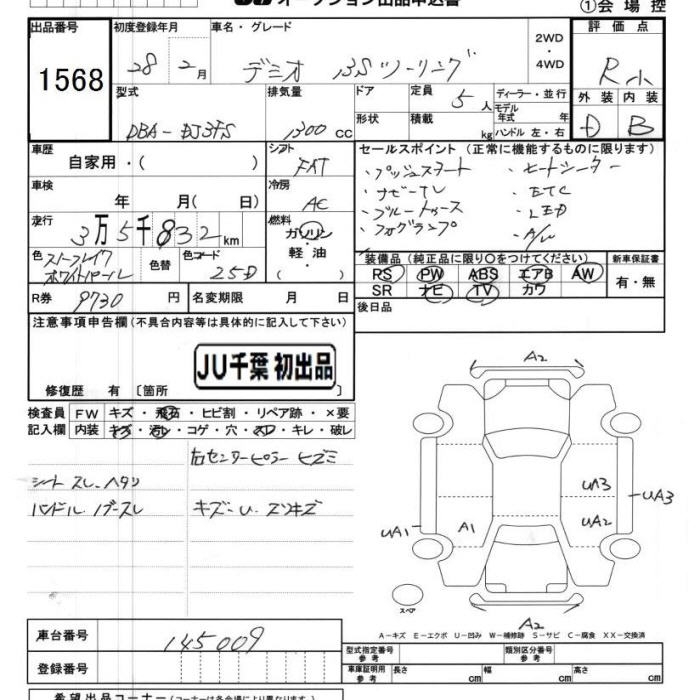 オークション出品申込書
①会場控
出品番号 初度登録年月 車名・グレード 2WD・4WD 評価点
1568 28年2月 デミオ 13Sツーリング R小
型式 排気量 ドア 定員 5人 ディーラー・並行 外装 内装
DBA-DJ3FS 1300cc 形状 積載 kg モデル年式 年 ハンドル 左・右 D B
車歴 自家用・( ) シフト FAT セールスポイント (正常に機能するものに限ります)
車検 年 月( 日) 冷房 AC ・プッシュスタート ・ヒートシーター
・ナビーTV ・ETC
走行 3万5千832km 燃料 ガソリン・軽油 ( ) ・ブルートゥース ・LED
・フォグランプ ・A/W
色 スノーフレイクホワイトパール 色替 色コード 25D
装備品 (純正品に限り○をつけてください) 新車保証書
PS PW ABS エアB AW 有・無
SR ナビ TV カワ
R券 9730円 名変期限 月 日 後日品
注意事項申告欄 (不具合内容等は具体的に記入して下さい)
JU千葉 初出品
修復歴 有 〔箇所 〕
検査員記入欄 FW キズ・飛石・ヒビ割・リペア跡・×要
内装 キズ・汚レ・コゲ・穴・スレ・キレ・破レ
右センターピラー ヒズミ
シート スレ・ヘタリ
ハンドル
キズ・U・スリキズ
A2
UA3
UA3
UA2
UA1
A1
スペア
A2
A-キズ E-エクボ U-凹み W-補修跡 S-サビ C-腐食 XX-交換済
車台番号 145009
型式指定番号 参考 類別区分番号 参考
登録番号
車庫証明用 参考 長さ cm 幅 cm 高さ cm
希望出品コーナー (コーナーは各会場により異なります)